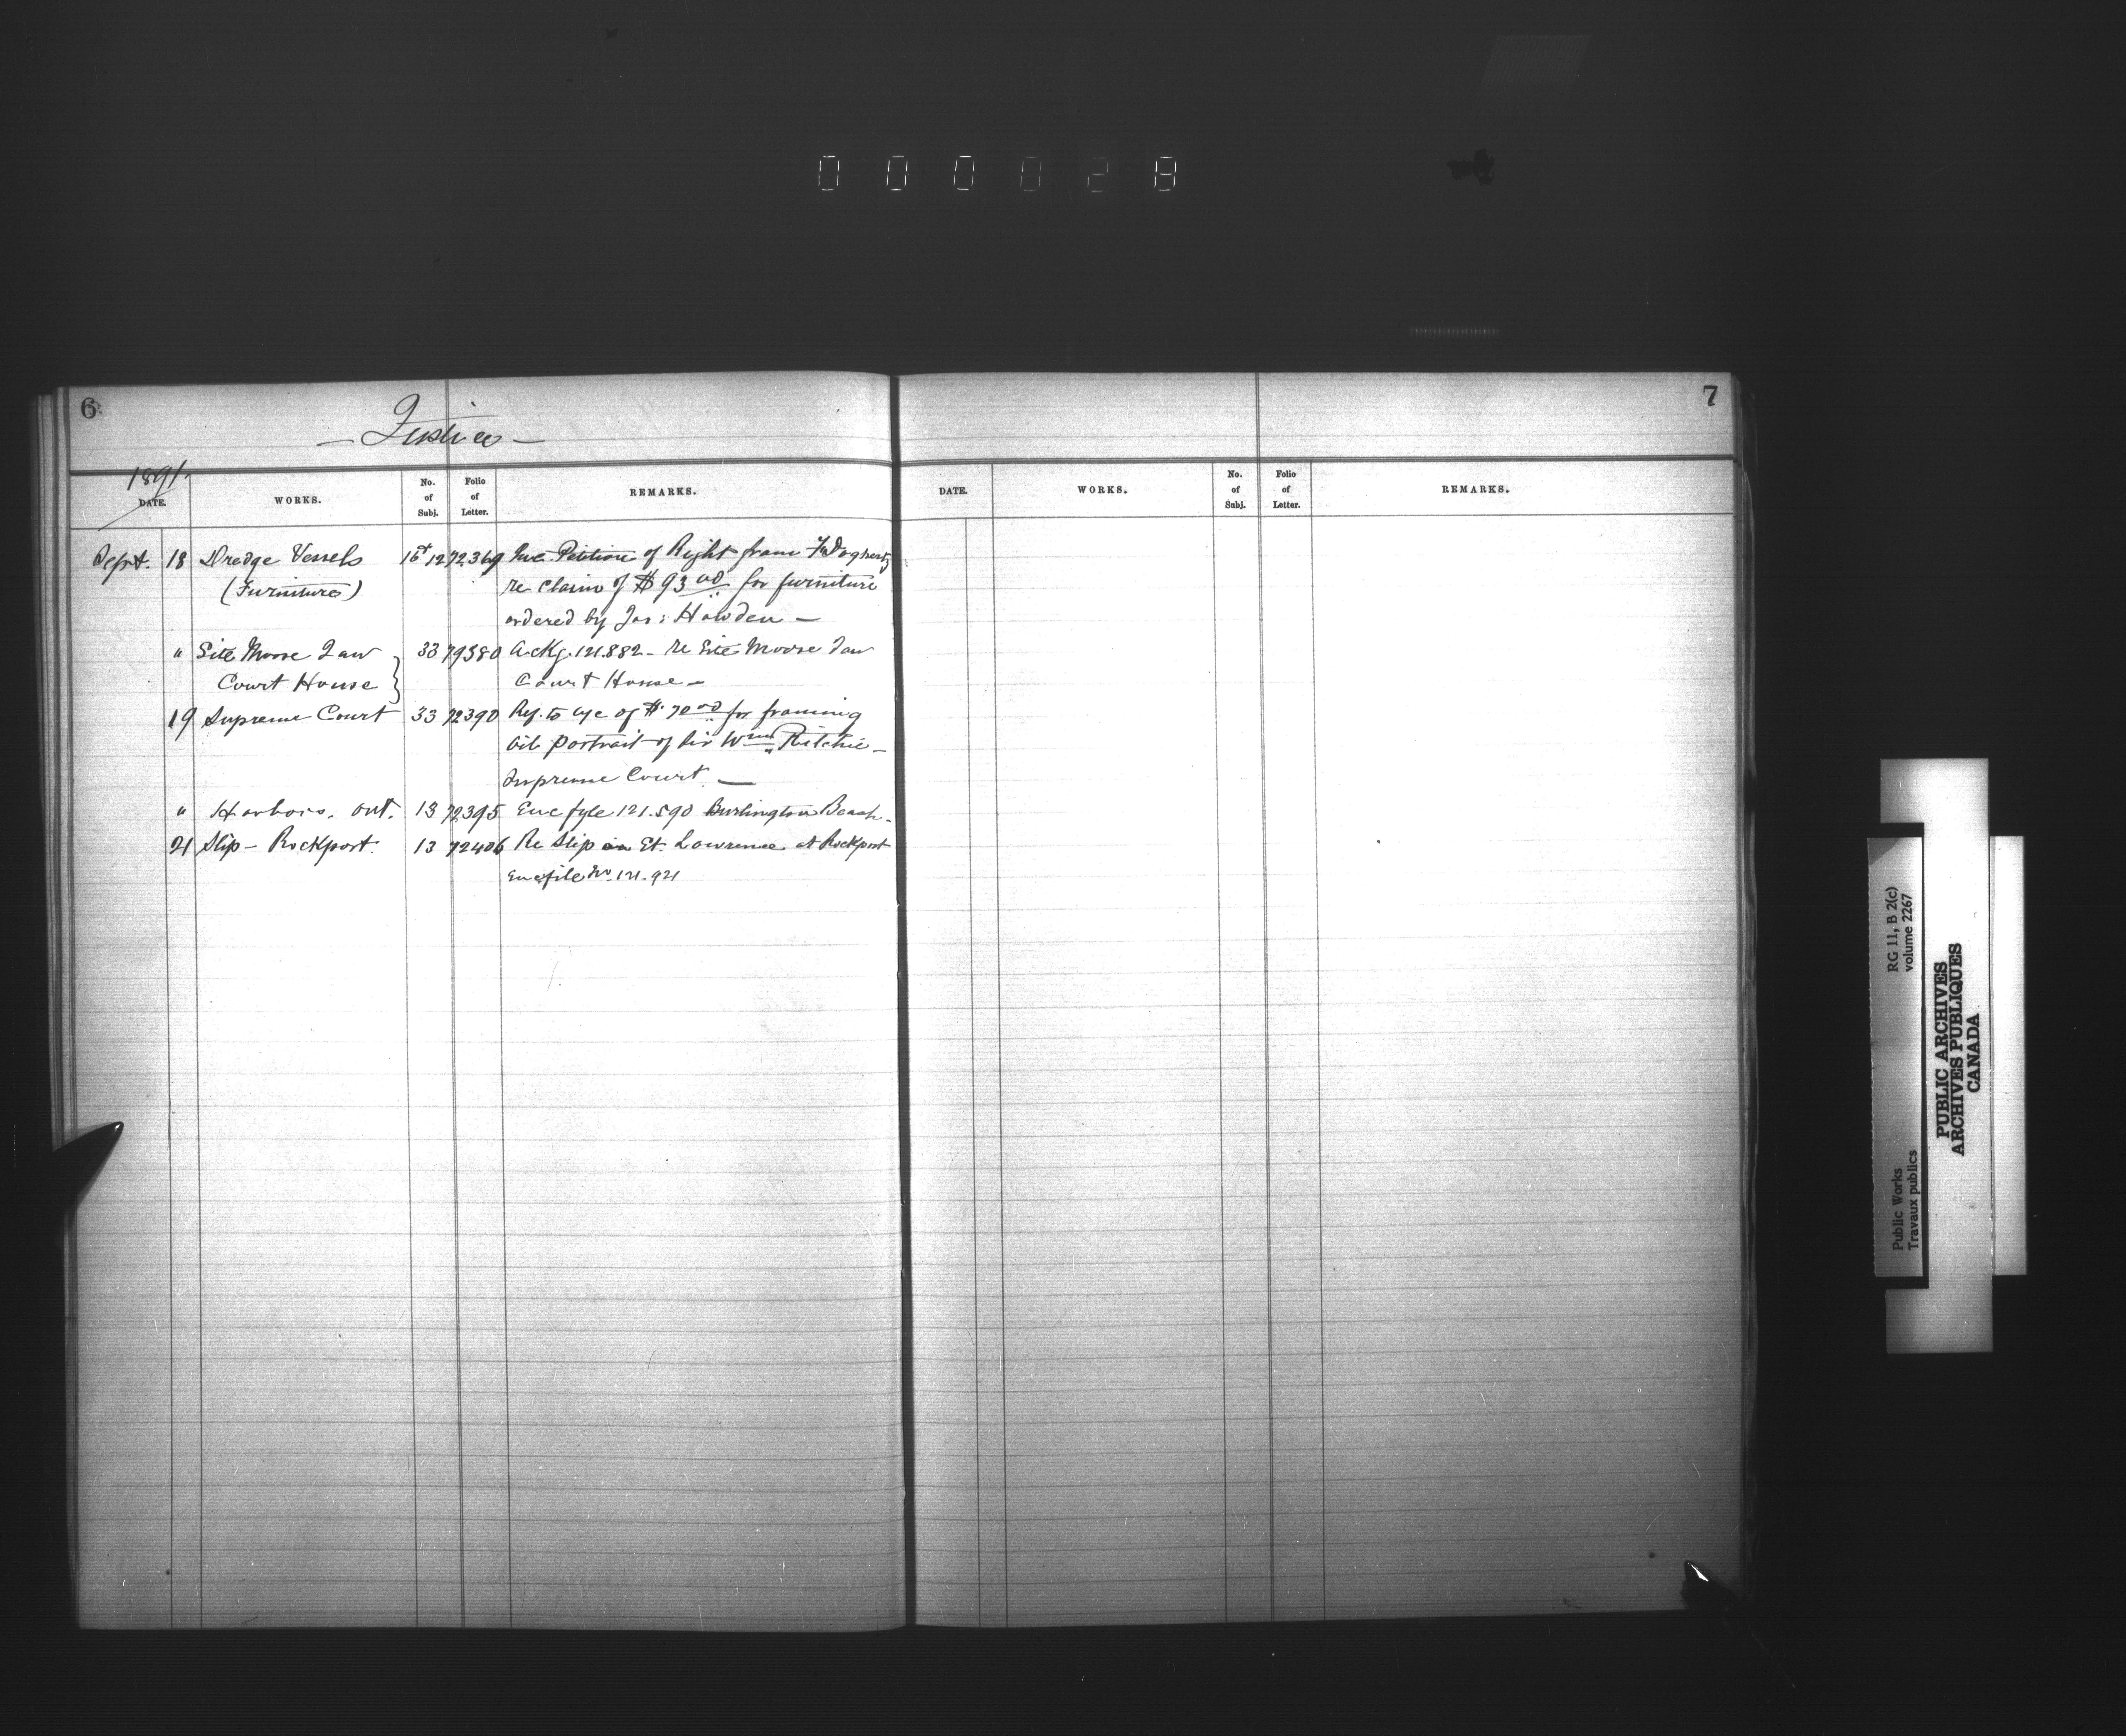 000028
6
— Justice —
1891.
DATE. WORKS. No. of Subj. Folio of Letter. REMARKS.
Sept. 18 Dredge Vessels 72369 Petition of Right from Dogherty
(Furniture) re claim of $93 00 for furniture
ordered by Jas: Howden —
" Site Moose Jaw 33 72380 Ackg. 121.882 – re Site Moose Jaw
Court House } Court House –
19 Supreme Court 33 72390 Ref. to a/c of $70 00 for framing
oil portrait of Sir Wm Ritchie –
Supreme Court —
" Harbors. Ont. 13 72395 Enc fyle 121.590 Burlington Beach.
21 Slip – Rockport. 13 72406 Re Slip in St. Lawrence at Rockport
Enc file No. 121.921
7
DATE. WORKS. No. of Subj. Folio of Letter. REMARKS.
RG 11, B 2(c)
volume 2267
Public Works
Travaux publics
PUBLIC ARCHIVES
ARCHIVES PUBLIQUES
CANADA